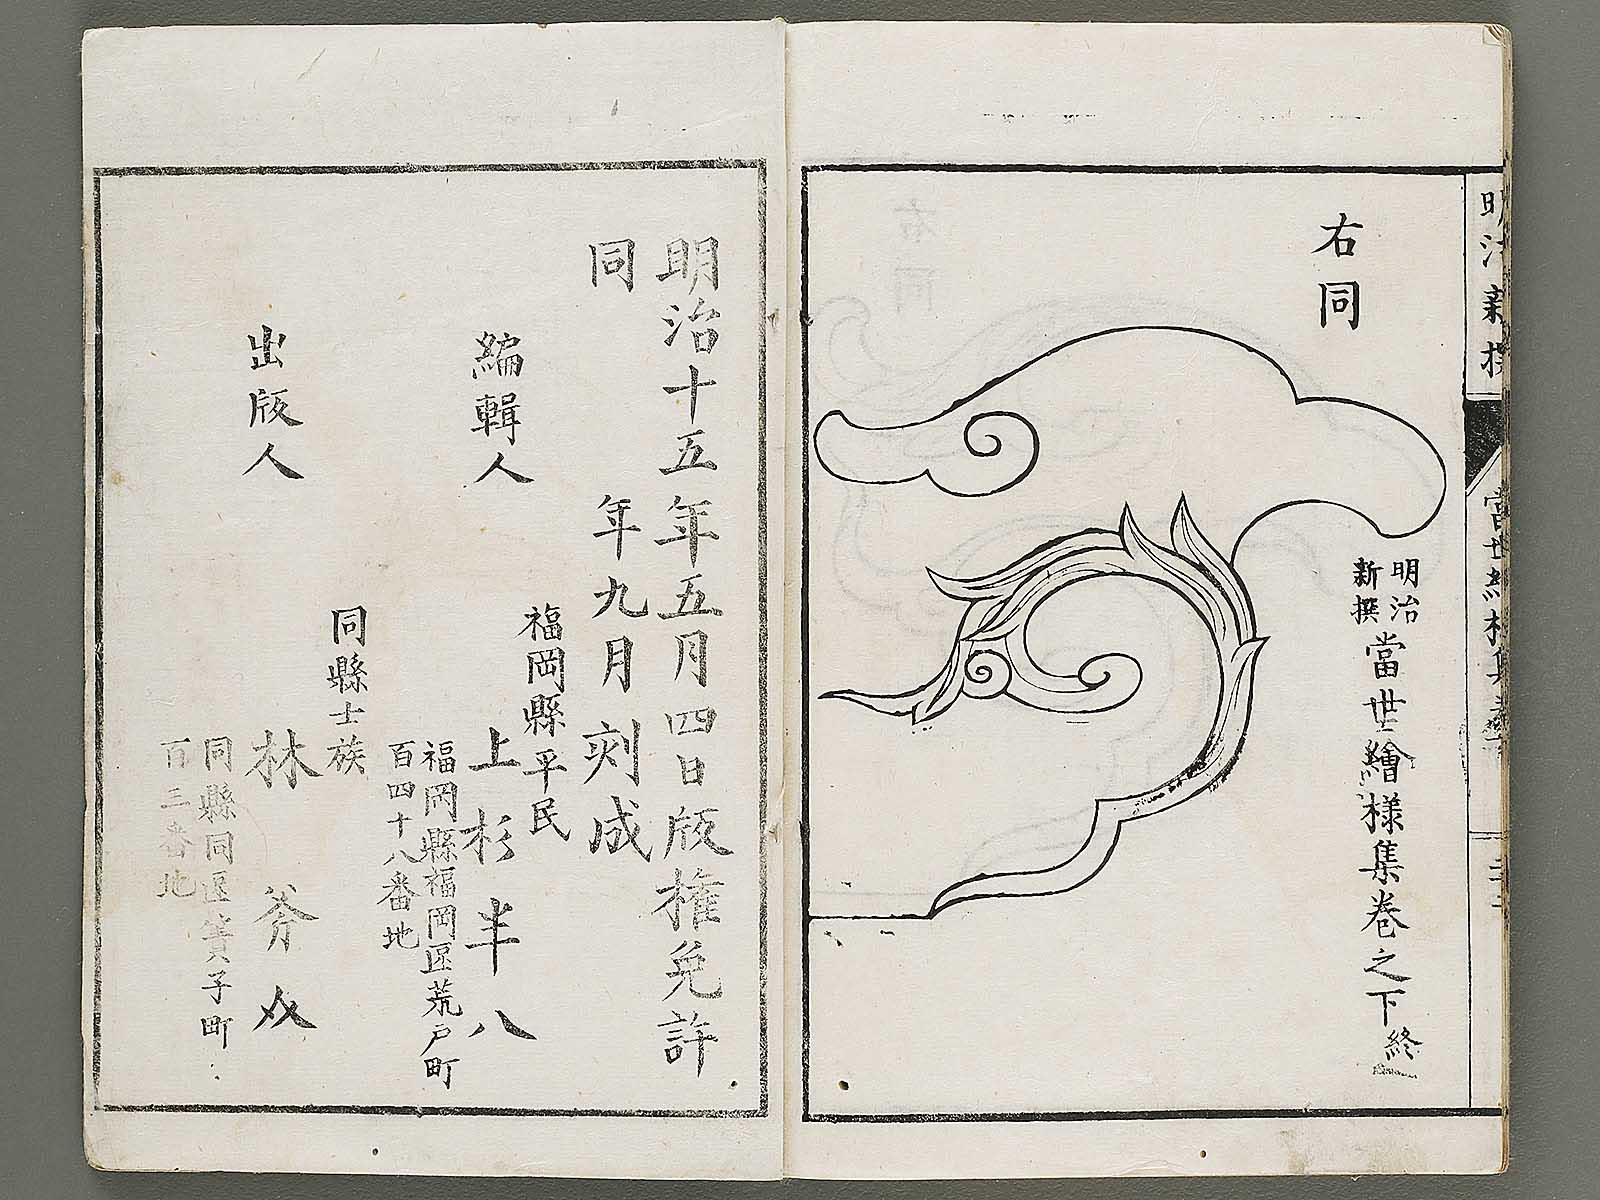 明治新撰
當世絵様集巻下
右同
明治
新撰
當世繪様集巻之下
終
明治十五年五月四日版権免許
同年九月刻成
福岡縣平民
編輯人
上杉半八
福岡縣福岡區荒戸町
百四十八番地
同縣士族
出版人
林斧
同縣同區簀子町
百三番地